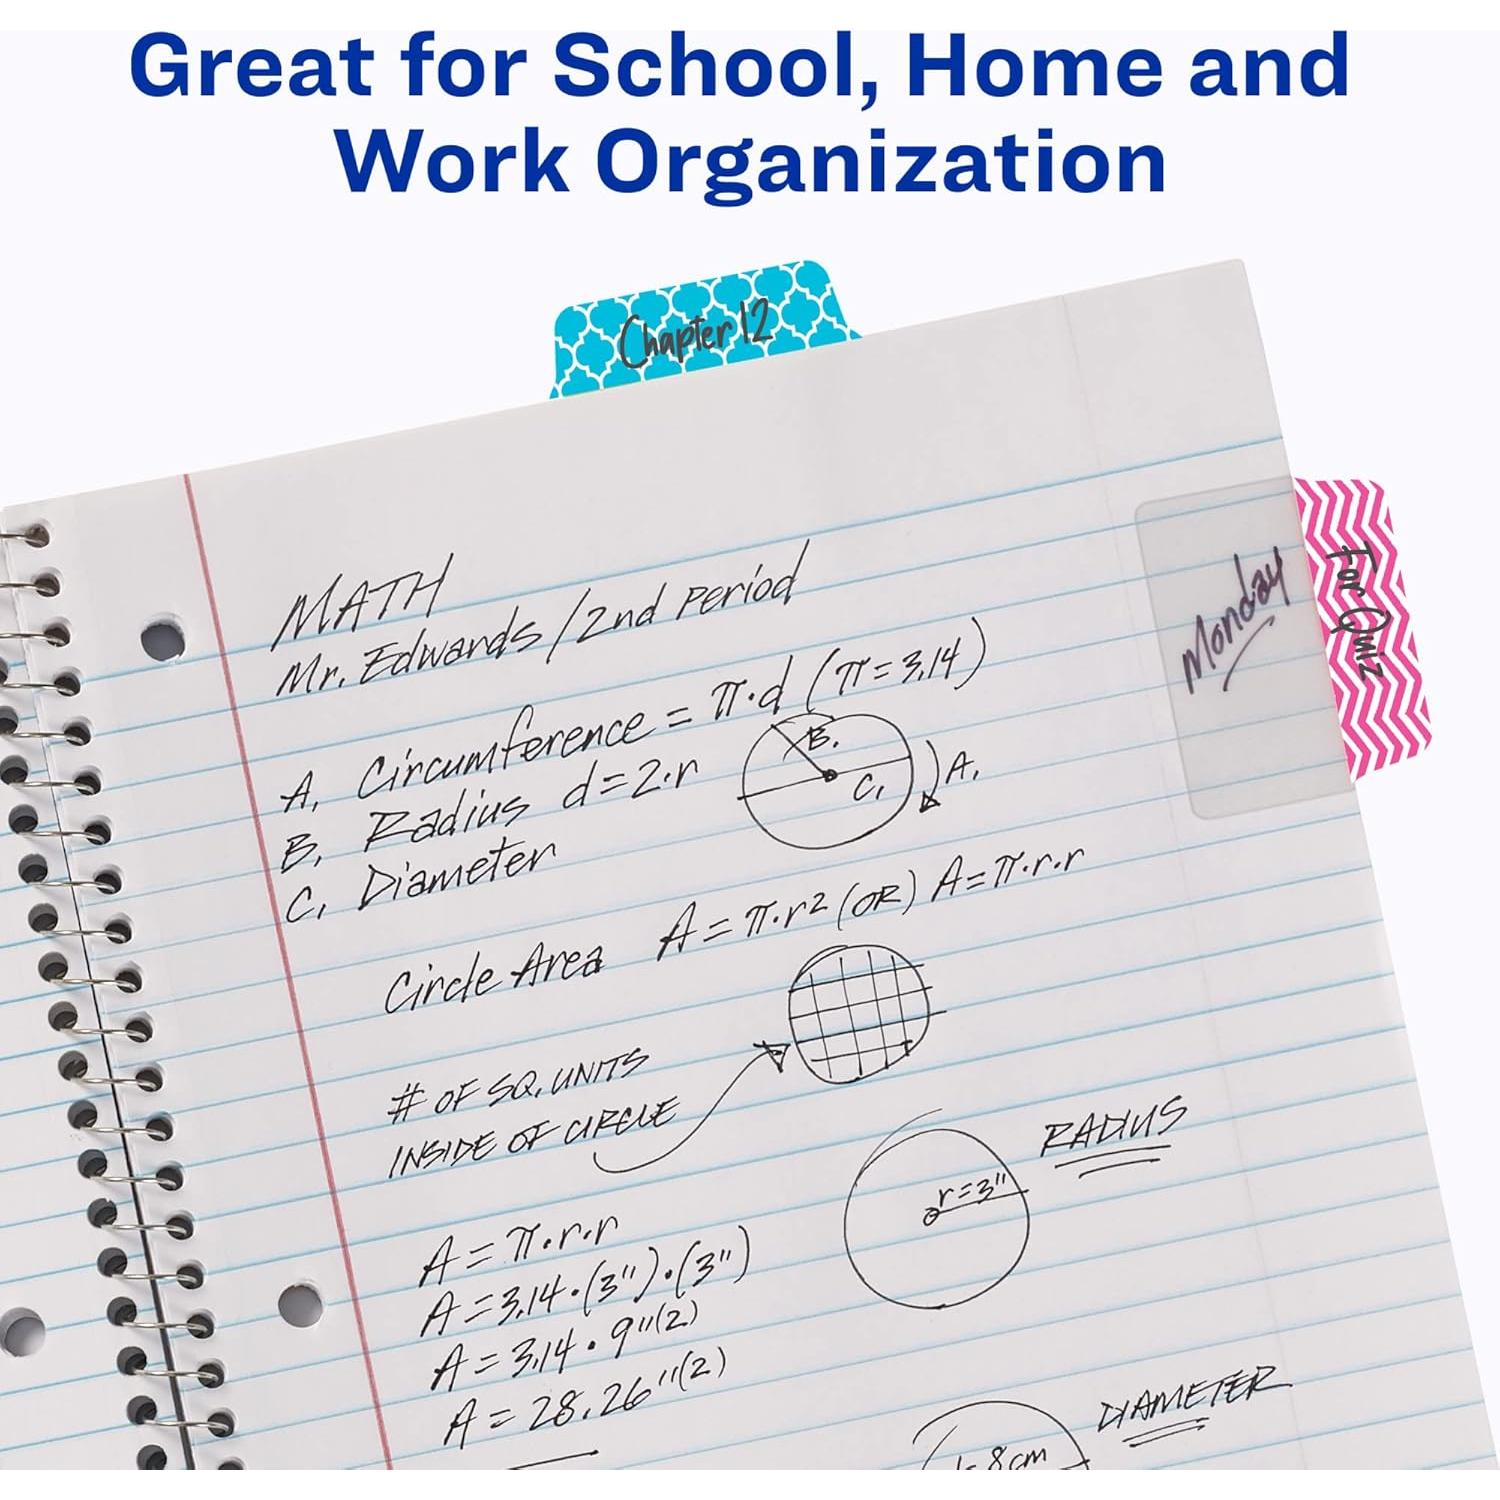 Great for School, Home and
Work Organization
Chapter 12
For Quiz
Monday
MATH
Mr. Edwards / 2nd Period
A. Circumference = π·d (π = 3.14)
B. Radius d=2·r
C. Diameter
B.
C.
A.
Circle Area A = π·r² (OR) A = π·r·r
# OF SQ. UNITS
INSIDE OF CIRCLE
RADIUS
r=3"
A = π·r·r
A = 3.14·(3")·(3")
A = 3.14 · 9"(2)
A = 28.26"(2)
DIAMETER
8cm